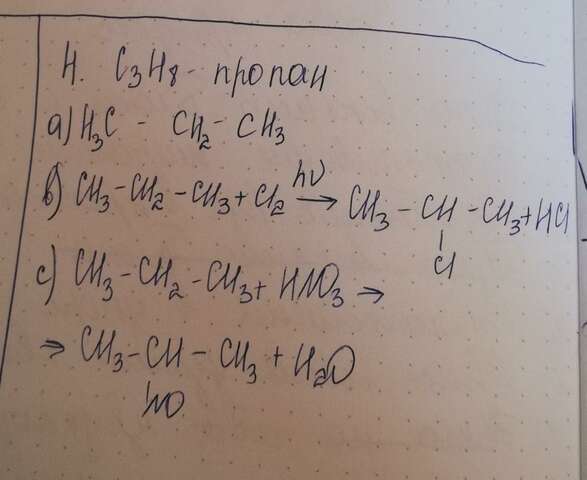 4. C3H8 - пропан
a) H3C - CH2 - CH3
b) CH3 - CH2 - CH3 + Cl2 hν → CH3 - CH - CH3 + HCl
Cl
c) CH3 - CH2 - CH3 + HNO3 ⇒
⇒ CH3 - CH - CH3 + H2O
NO